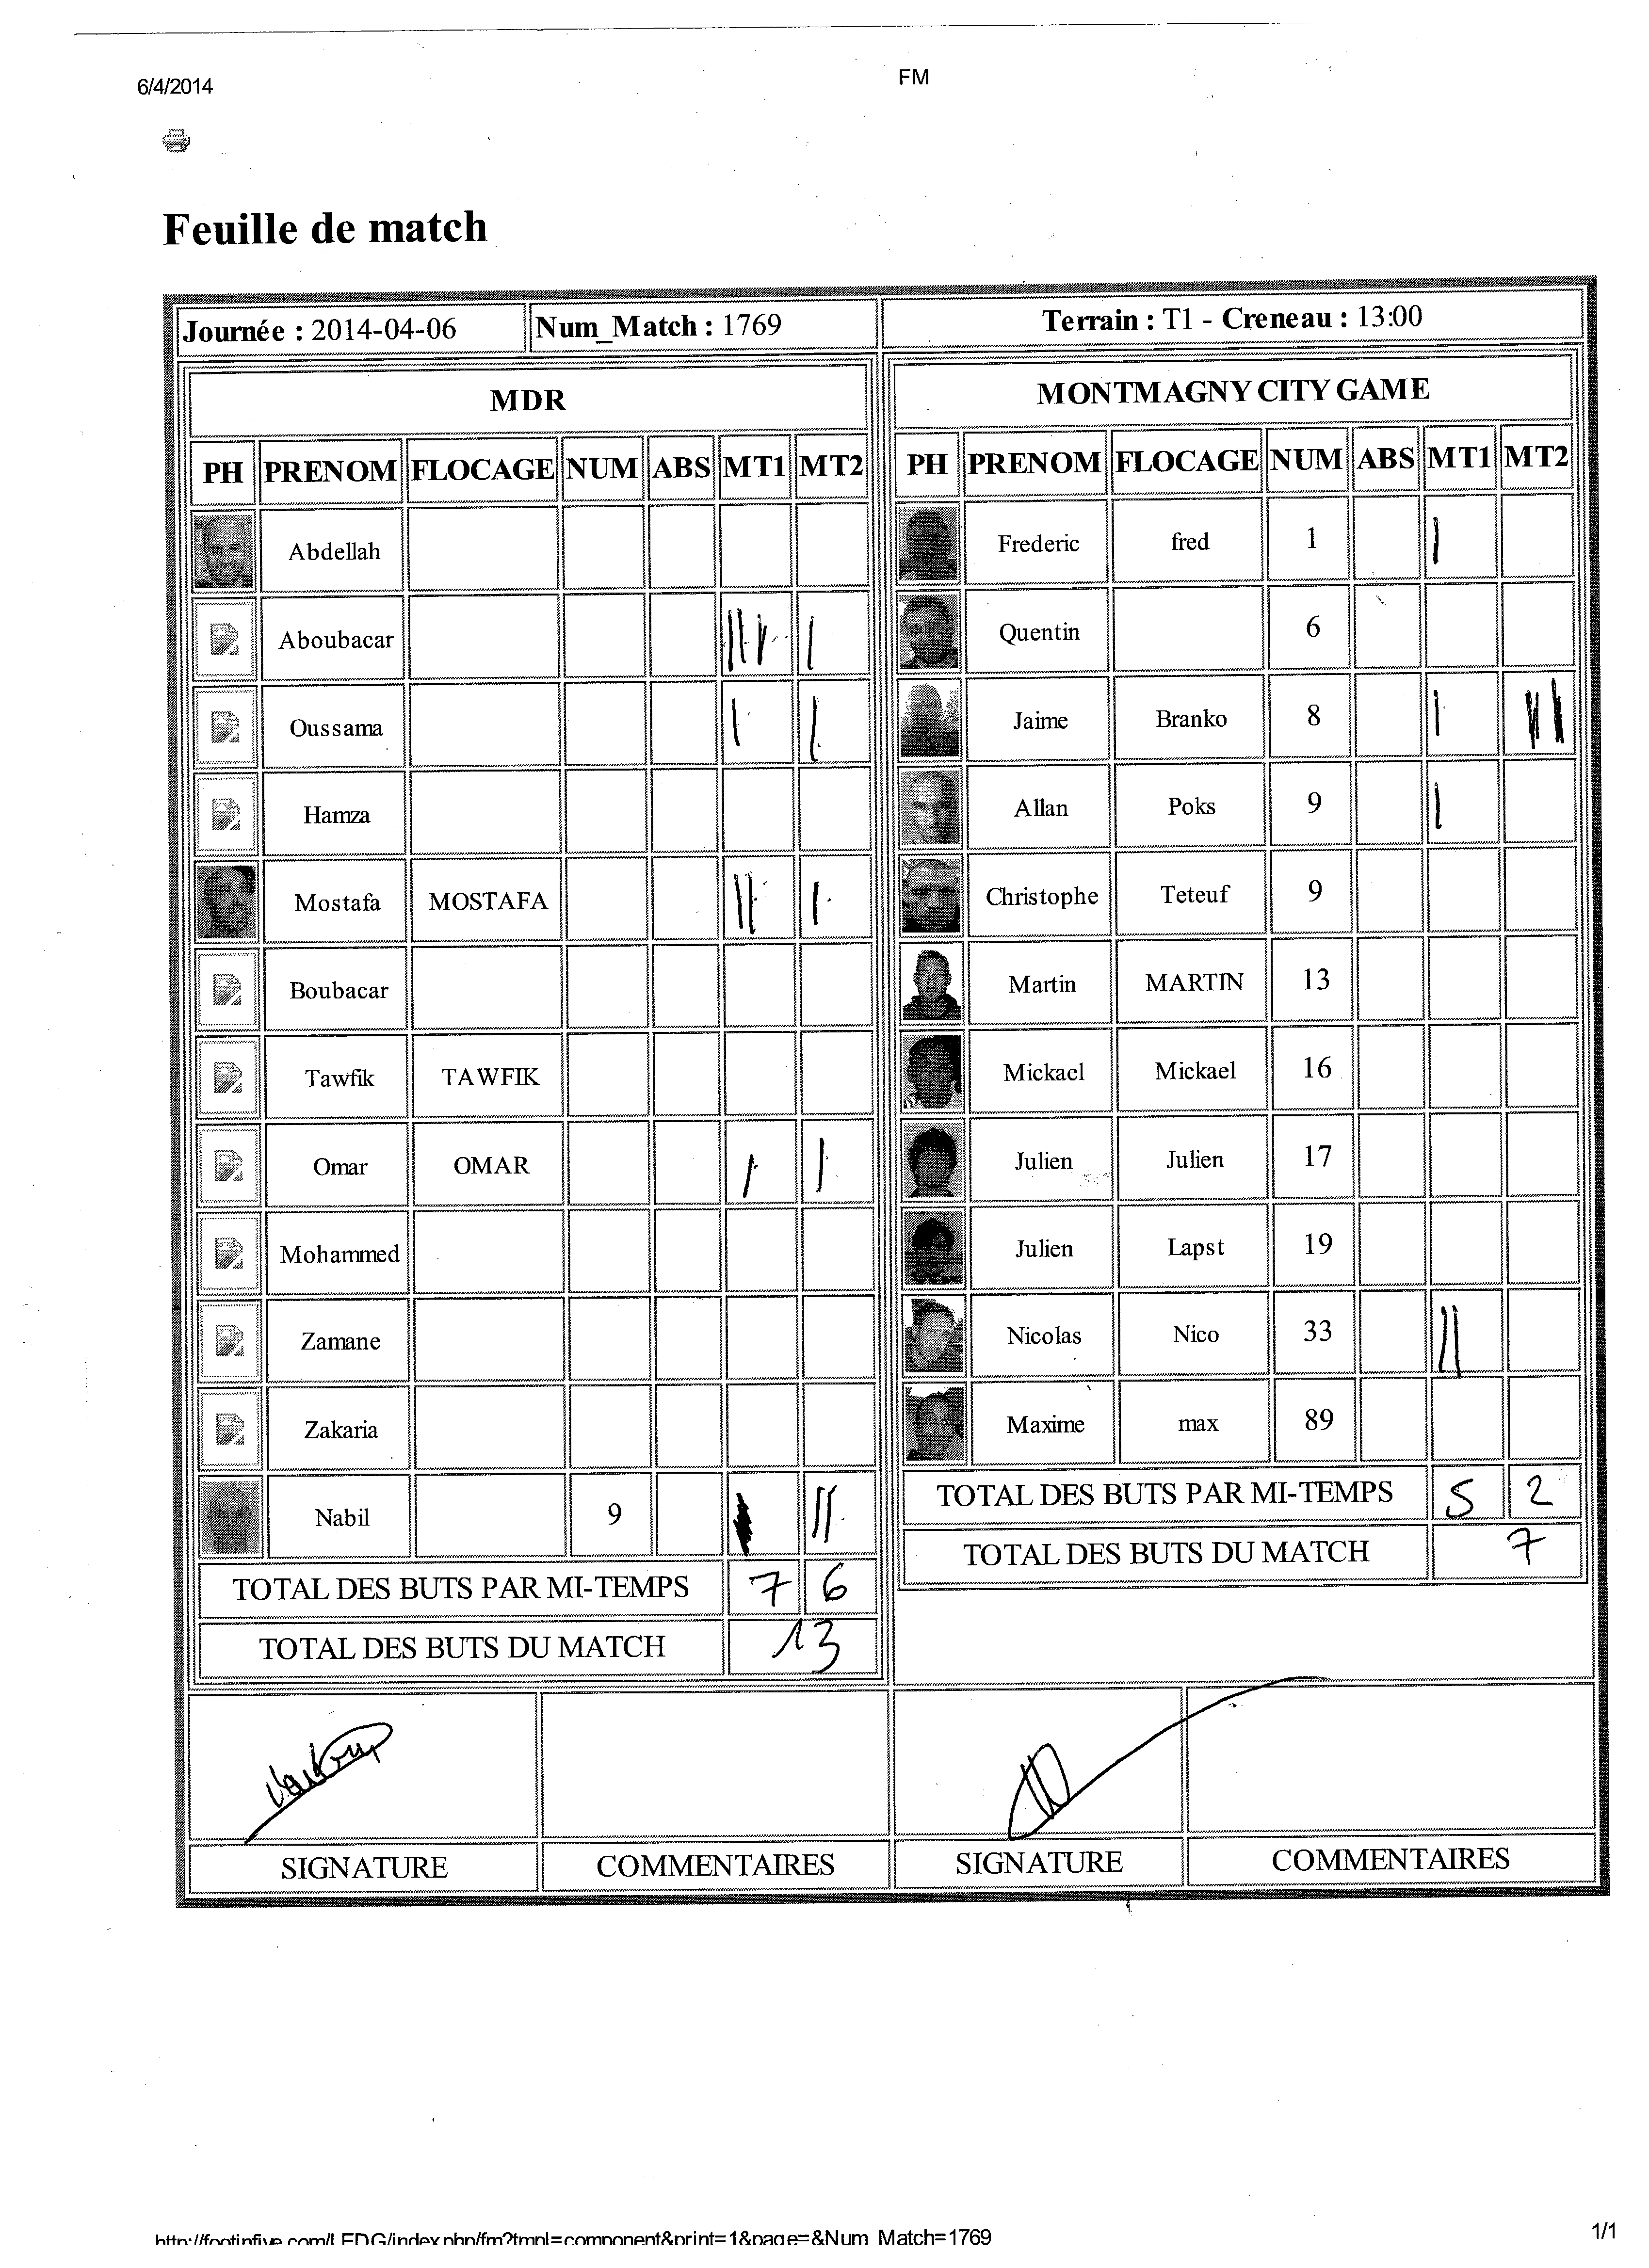 6/4/2014 FM
Feuille de match
Journée : 2014-04-06 Num_Match : 1769 Terrain : T1 - Creneau : 13:00
MDR
PH PRENOM FLOCAGE NUM ABS MT1 MT2
Abdellah
Aboubacar
Oussama
Hamza
Mostafa MOSTAFA
Boubacar
Tawfik TAWFIK
Omar OMAR
Mohammed
Zamane
Zakaria
Nabil 9
TOTAL DES BUTS PAR MI-TEMPS 7 6
TOTAL DES BUTS DU MATCH 13
MONTMAGNY CITY GAME
PH PRENOM FLOCAGE NUM ABS MT1 MT2
Frederic fred 1
Quentin 6
Jaime Branko 8
Allan Poks 9
Christophe Teteuf 9
Martin MARTIN 13
Mickael Mickael 16
Julien Julien 17
Julien Lapst 19
Nicolas Nico 33
Maxime max 89
TOTAL DES BUTS PAR MI-TEMPS 5 2
TOTAL DES BUTS DU MATCH 7
SIGNATURE COMMENTAIRES SIGNATURE COMMENTAIRES
http://footinfive.com/LEDG/index.php/fm?tmpl=component&print=1&page=&Num_Match=1769 1/1